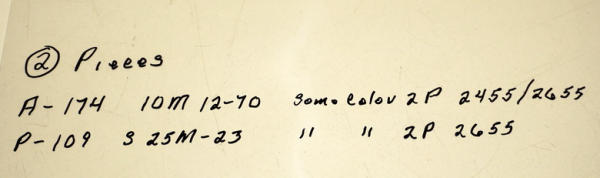 ② Pieces
A-174 10M 12-70 Some Color 2P 2455/2655
P-109 S 25M-23 " " 2P 2655